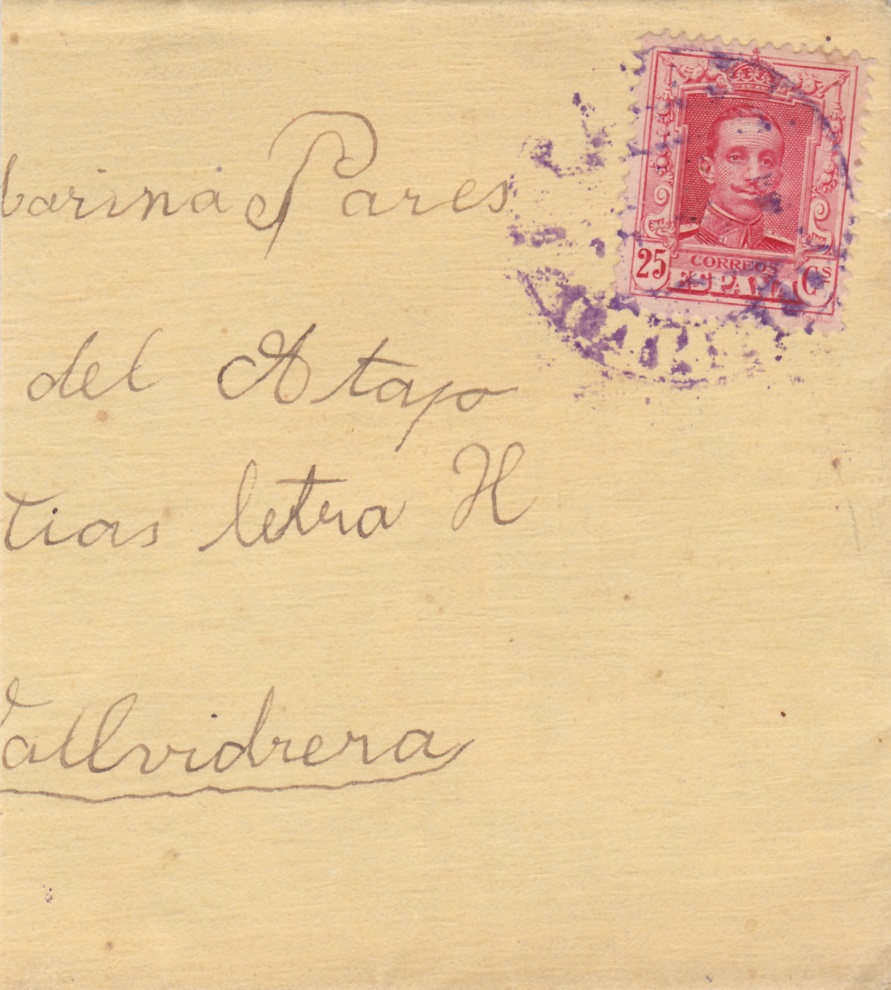 Marina Pares
del Atajo
tias letra H
Vallvidrera
25 CORREOS Cs
ESPAÑA